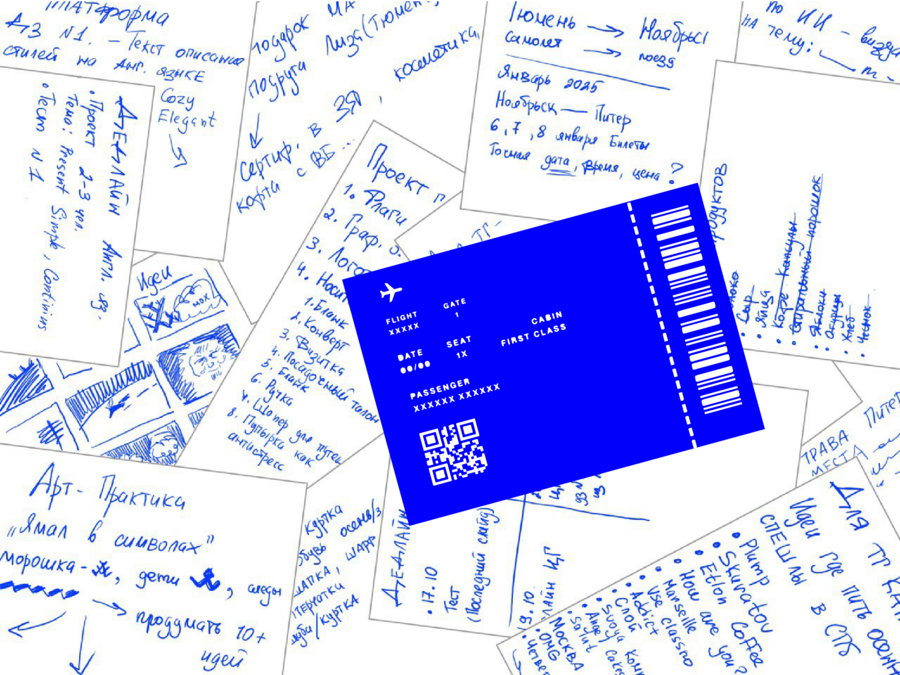 ПЛАТФОРМА
ДЗ N1. – Текст описание
стилей на Анг. языке
Cozy
Elegant
подарок МА
подруга Лиза (Тюмень)
косметика,
сертиф. в ЗЯ,
карта с ВБ...
Тюмень → Ноябрьс
Самолет → поезд
Январь 2025
Ноябрьск — Питер
6, 7, 8 января Билеты
Точная дата, время, цена ?
по ИИ – визуа
на тему:
ДЕДЛАЙН Англ. яз.
• Проект 2-3 чел.
Тема: Present Simple, Continius
• Тест N1
Идеи
MDX.
Проект
1. Флаги
2. Граф. э
3. Лого
4. Носит
1. Бланк
2. Конверт
3. Визитка
4. Посадочный талон
5. Бнайк
6. Ручка
7. Шопер для путеш
8. Пупырка как
антистресс
родуктов
олоко
• Сыр
• Яйца
• Кофе Капсулы
• Стиральный порошок
• Яблоки
• Огурцы
• Хлеб
• Чеснок
FLIGHT
XXXXX
GATE
1
DATE
00/00
SEAT
1X
CABIN
FIRST CLASS
PASSENGER
XXXXXX XXXXXX
Арт-Практика
"Ямал в символах"
морошка-, дети, следы
→ продумать 10+
идей
куртка
бувь осень/з
шапка, шарф
перчатки
ба/куртка
ДЕДЛАЙН
• 17.10
Тест
(Последний слайд)
9.10.
лайн ЦГ
Питер
ТРАВА
МЕСТА
Для ТГ КАН
Идеи где пить осенн
спешлы в СПб
• Plump
• Skuratov Coffee
• Etlon
• How are you?
• Marseille
• Use classno
• Addict
• Слой
• Svoya Комн
• Ange/Cakes
• Salut
• Москва
• OMG
• Четверг